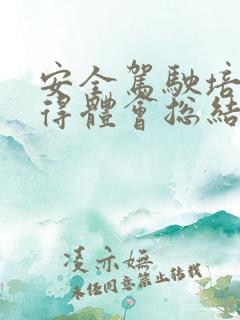 安全駕駛培
得體會總結
凌亦嫵
未经同意禁止转载